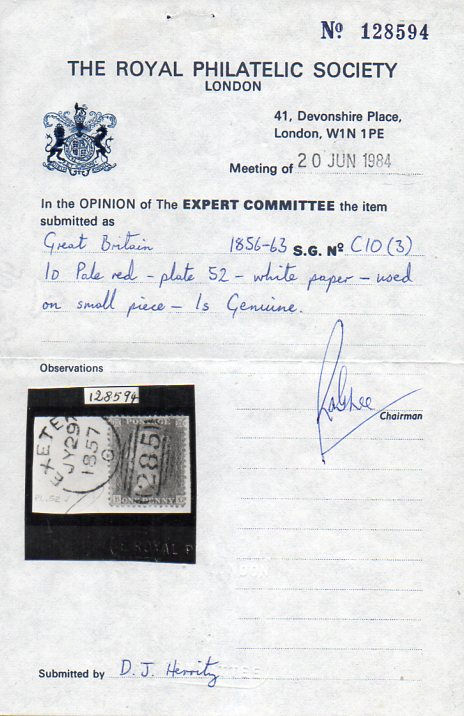 Nº 128594
THE ROYAL PHILATELIC SOCIETY
LONDON
41, Devonshire Place,
London, W1N 1PE
Meeting of 20 JUN 1984
In the OPINION of The EXPERT COMMITTEE the item
submitted as
Great Britain 1856-63 S.G. Nº C10 (3)
1D Pale red - plate 52 - white paper - used
on small piece - Is Genuine.
Observations
Chairman
128594
EXETE
JY 29
1857
G
POSTAGE
285
ONE PENNY
PL.52
E ROYAL P
Submitted by D. J. Herritz